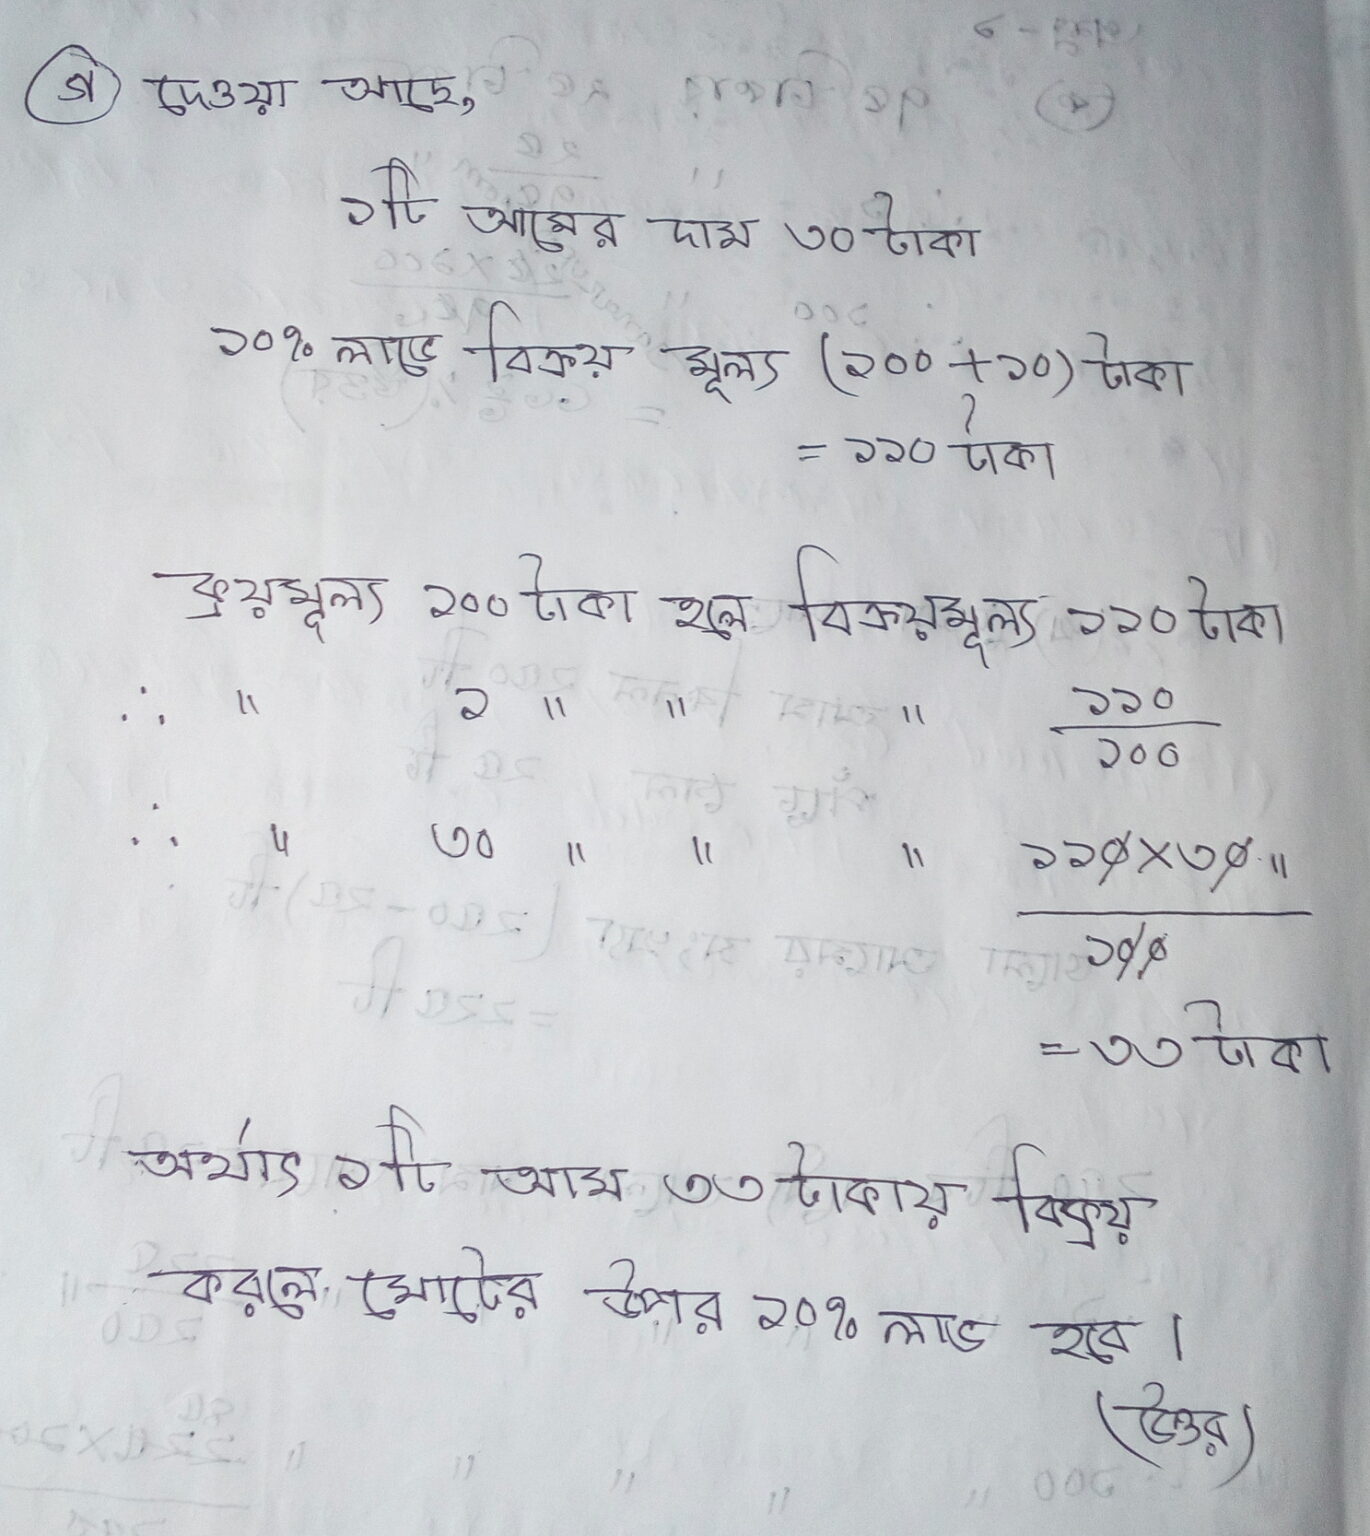 গ দেওয়া আছে,
১টি আমের দাম ৩০ টাকা
১০% লাভে বিক্রয় মূল্য (১০০ + ১০) টাকা
= ১১০ টাকা
ক্রয়মূল্য ১০০ টাকা হলে বিক্রয়মূল্য ১১০ টাকা
∴ " ১ " " " ১১০/১০০
∴ " ৩০ " " " ১১০×৩০ "/১০০
= ৩৩ টাকা
অর্থাৎ ১টি আম ৩৩ টাকায় বিক্রয়
করলে মোটের উপর ১০% লাভ হবে।
(উত্তর)